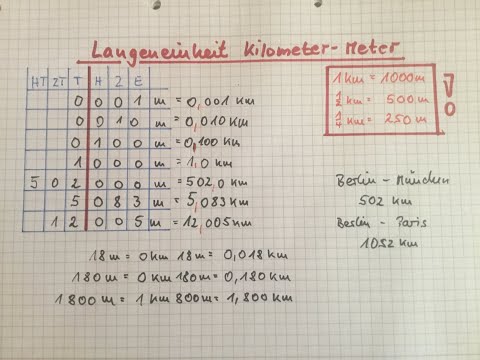 Längeneinheit Kilometer-Meter
HT ZT T H Z E
0 0 0 1 m = 0,001 km
0 0 1 0 m = 0,010 km
0 1 0 0 m = 0,100 km
1 0 0 0 m = 1,0 km
5 0 2 0 0 0 m = 502,0 km
5 0 8 3 m = 5,083 km
1 2 0 0 5 m = 12,005 km
1 km = 1000 m
1/2 km = 500 m
1/4 km = 250 m
!
Berlin - München
502 km
Berlin - Paris
1052 km
18 m = 0 km 18 m = 0,018 km
180 m = 0 km 180 m = 0,180 km
1800 m = 1 km 800 m = 1,800 km